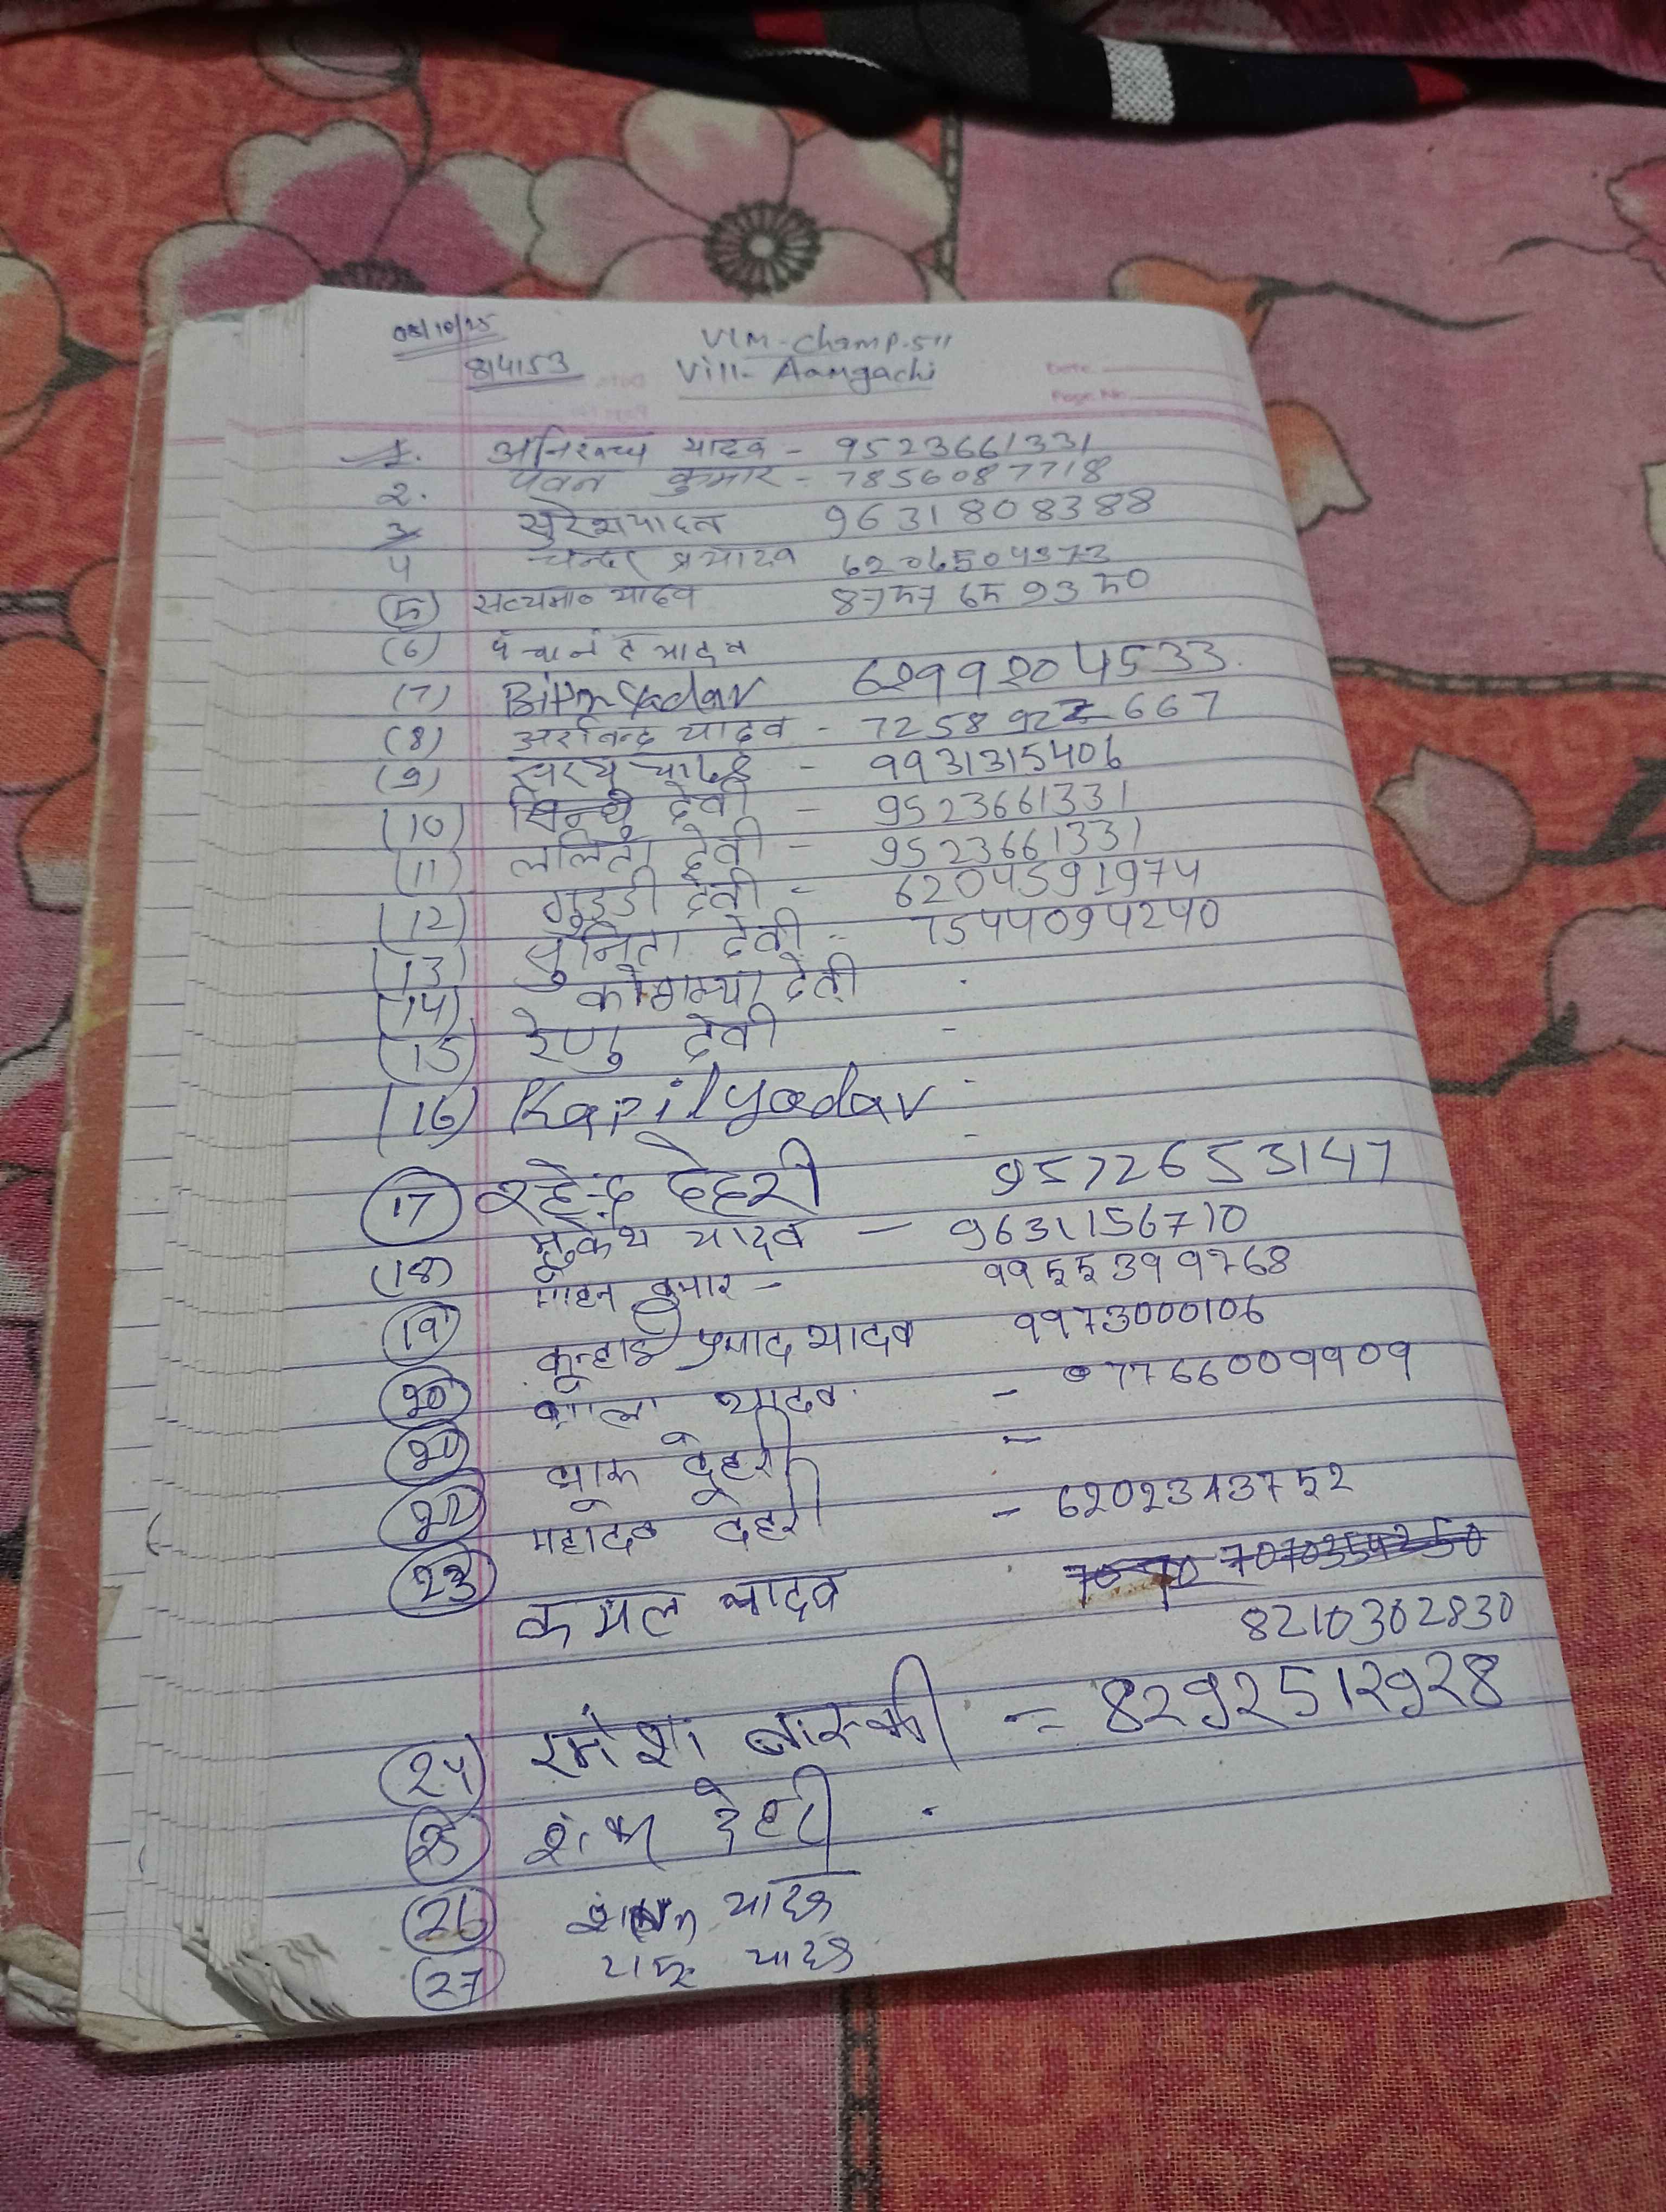 08/10/25
VLM-Champ.511
814153
Vill- Aamgachi
Date
Page No.
1. अनिरुध्य यादव - 9523661331
2. पवन कुमार - 7856087718
3 सुरेशयादव 9631808388
4 चन्दर 6206504373
(5) सत्यमान यादव 8757659350
(6) यादव
(7) Yadav 6299204533
(8) अरविन्द यादव - 7258922667
(9) सरयु यादव - 9931315406
(10) सिन्धु देवी - 9523661331
(11) ललिता देवी - 9523661331
(12) गुड्डी देवी - 6204591974
(13) सुनिता देवी - 7544094240
(14) देवी
(15) रेणु देवी -
(16) Kapil Yadav
(17) देहरी 9572653147
(18) मुकेश यादव - 9631156710
(19) मोहन कुमार - 9955399768
(20) कन्हाई प्रसाद यादव 9973000106
(21) यादव - 7766009909
(22) देहरी -
(23) महादेव देहरी - 6202343752
कमल यादव 7070354250
8210302830
(24) रमेश बास्की = 8292512928
(25) देहरी
(26) यादव
(27) यादव